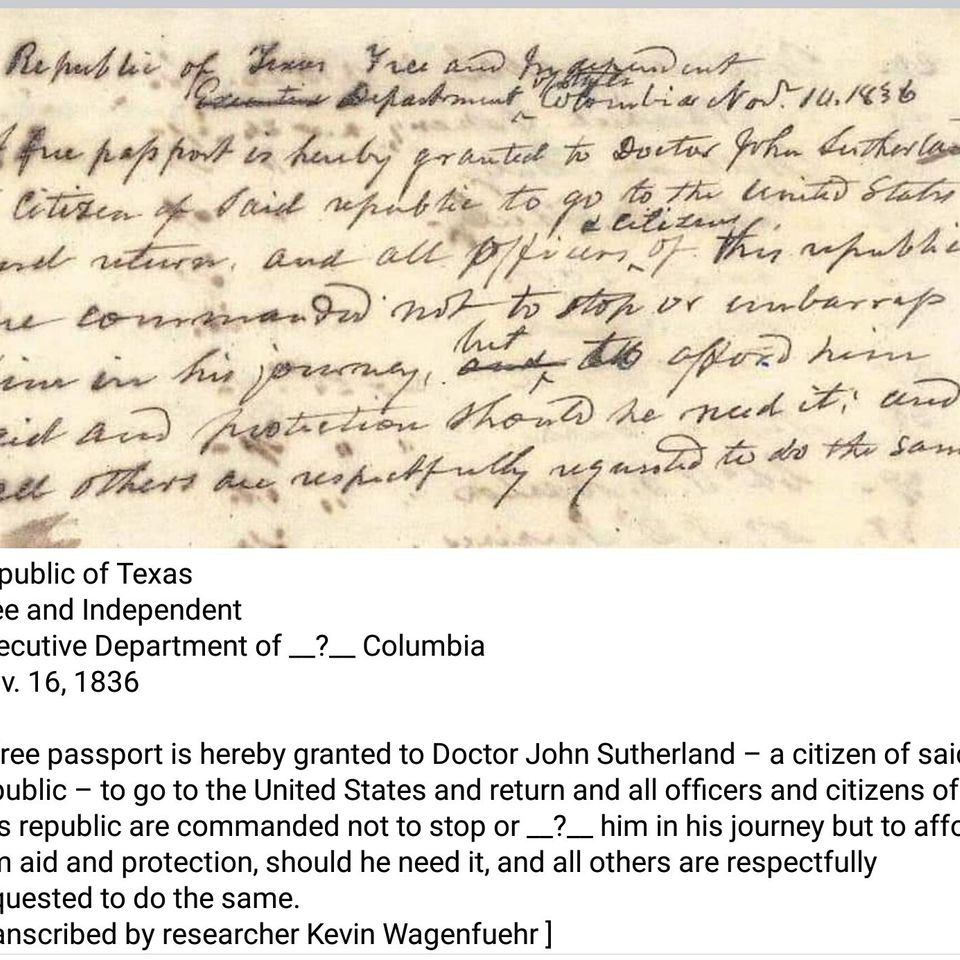 Republic of Texas Free and Independent
of State
Executive Department Columbia Nov. 16. 1836
A free passport is hereby granted to Doctor John Sutherland
Citizen of Said republic to go to the United States
and return, and all officers & citizens of this republic
are commanded not to stop or embarrass
him in his journey, but and to afford him
aid and protection should he need it; and
all others are respectfully requested to do the same
public of Texas
ee and Independent
ecutive Department of __?__ Columbia
v. 16, 1836
ree passport is hereby granted to Doctor John Sutherland – a citizen of said
public – to go to the United States and return and all officers and citizens of
s republic are commanded not to stop or __?__ him in his journey but to affo
m aid and protection, should he need it, and all others are respectfully
quested to do the same.
anscribed by researcher Kevin Wagenfuehr ]